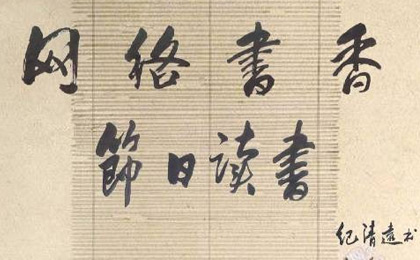 网络書香
節日读書
纪清遠书